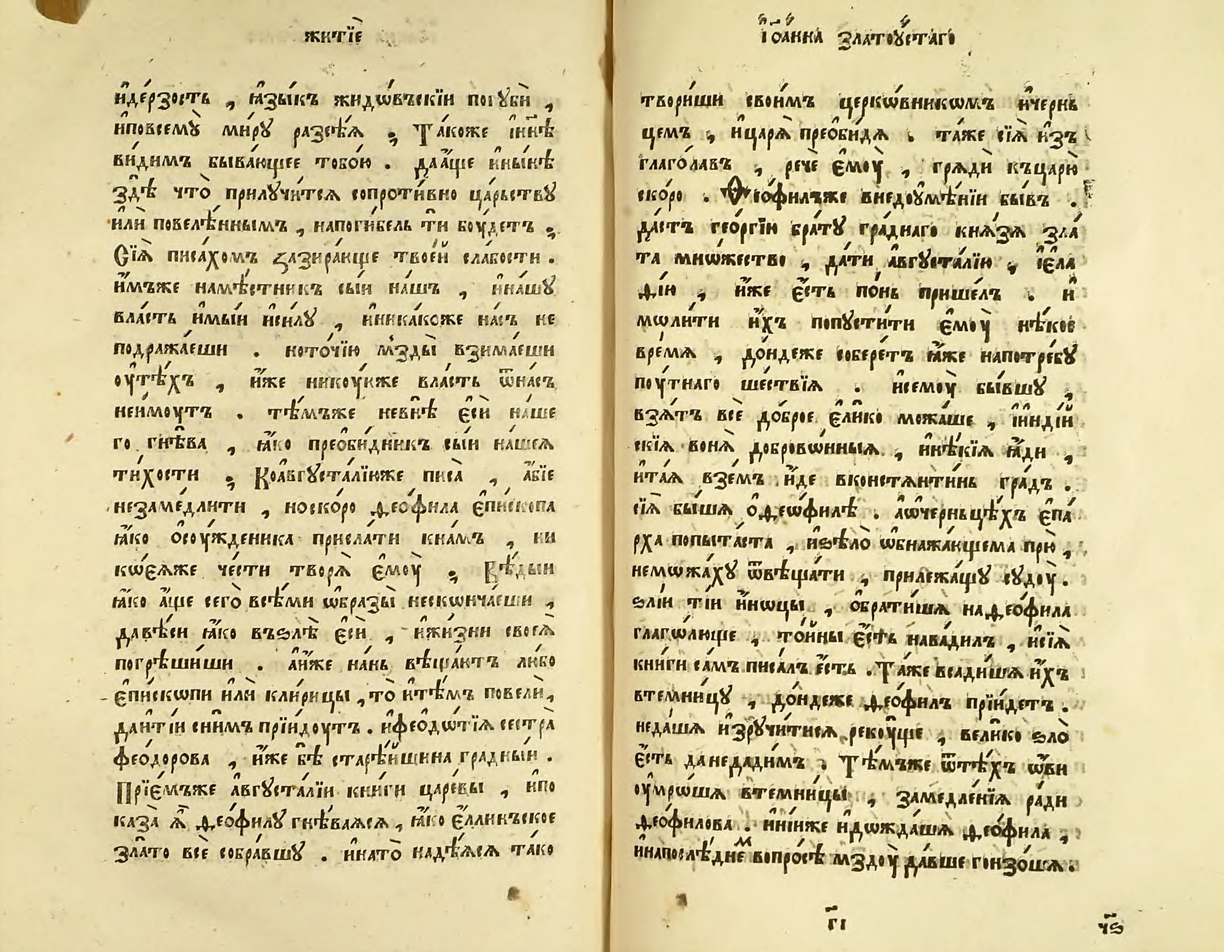 житїѐ
и҆де́рзость , ꙗ҆зы́къ жидѡ́въскїи погꙋбѝ ,
и҆повсемꙋ̀ ми́рꙋ разсѣ́ѧ ; Та́коже и҆ нн҃ѣ
ви́димъ быва́ющее тобо́ю . даа҆́ще и҆ ны́нѣ
здѣ̀ что̀ прилꙋчи́тсѧ сопроти́вно ца́рьствꙋ
и҆лѝ повелѣ́ннымъ , напоги́бель тѝ боу́детъ ;
Сїѧ̀ писа́хомъ зазира́юще твое́й сла́бости .
и҆́мъже намѣ́стникъ сыи на́шъ , и҆на́шꙋ
вла́сть и҆мы́и и҆си́лꙋ , и҆никако́же на́съ не
подража́еши . ноточїю мзды̀ взима́еши
оу҆тѣ́хъ , и҆́же никоуи́же вла́сть ѿна́съ
неи́моутъ . тѣ́мъже невнѣ̀ є҆сѝ на́ше
го гнѣ́ва , ꙗ҆́ко преоби́дникъ сыи на́шеѧ
ти́хости ; Коа҆вгꙋста́лїюже писа̀ , а҆́бїе
незаме́длити , носко́ро Ѳео́фила є҆пи́скопа
ꙗ҆́ко ѻ҆соу́жденика присла́ти кна́мъ , ни
коѐѧже че́сти творѧ̀ є҆моу̀ ; Вѣ́дыи
ꙗ҆́ко а҆́ще сего̀ всѣ́ми ѡ҆́бразы нескѡнча́еши ,
да вѣ́си ꙗ҆́ко въѕлѣ̀ є҆сѝ , и҆жи́зни своеѧ̀
погрѣши́ши . а҆и҆́же на́нь вѣща́ютъ лю́бо
є҆пи́скопи и҆лѝ кли́рицы , то̀ и҆ тѣ́мъ повелѝ ,
да и҆ ті́и сни́мъ прїи́доутъ . и҆феодѡ́тїѧ сестра̀
фео́дорова , и҆́же бѣ̀ старѣ́йшина гра́дныи .
Прїе́мъже а҆вгꙋста́лїи кни́ги царе́вы , и҆по
каза̀ ѧ҆̀ Ѳео́филꙋ гнѣ́ваѧсѧ , ꙗ҆́ко є҆́ллинъское
зла́то всѐ собра́вшꙋ . и҆ на то̀ надѣ́ѧсѧ та́ко
І҆ѡа́нна златоу́стаго
твори́ши свои́мъ церкѡ́вникѡмъ и҆черны
цемъ , и҆царѧ̀ преоби́дѧ . та́же сїѧ̀ и҆зъ
глаго́лавъ , речѐ є҆моу̀ , грѧдѝ къ царю̀
ско́ро . Ѳео́филъже внедоумѣ́нїи бы́въ .
да́стъ гео́ргїю бра́тꙋ гра́днаго кнѧ́зѧ зла́
та мнѡ́жество , да́ти а҆вгꙋста́лїю , і҆є҆ла
дїю , и҆́же є҆́сть по́нь прише́лъ . и҆
моли́ти и҆́хъ попꙋсти́ти є҆моу̀ нѣ́кое
вре́мѧ , до́ндеже собере́тъ ꙗ҆́же напотре́бꙋ
поу́тнаго ше́ствїѧ . и҆семоу̀ бы́вшꙋ ,
взѧ́тъ всѐ до́брое є҆ли́ко можа́ше , і҆и҆нді́й
скїѧ вонѧ̀ доброво́нныѧ , и҆нѣ́кїѧ ꙗ҆́ди ,
и҆та́ѧ взе́мъ и҆́де вконстѧнти́нь гра́дъ .
сїѧ̀ бы́шѧ ѡ҆Ѳео́филѣ . а҆ѡ҆чернцѣ́хъ є҆па́
рха попыта́ста , и҆ѕѣло̀ ѡ҆бнажа́ющема прю̀ ,
немо́жахꙋ ѿвѣща́ти , прилежа́щꙋ сꙋдоу̀ .
ѕлі́и ті́и и҆́ноцы , ѻ҆брати́шѧ на Ѳео́фила
глаго́люще , то́йны є҆́сть нава́дилъ , и҆сїѧ̀
кни́ги са́мъ писа́лъ є҆́сть . Та́же всади́шѧ и҆́хъ
втемни́цꙋ , до́ндеже Ѳео́филъ прїи́детъ .
неда́шѧ и҆зрꙋчи́тисѧ рекоу́ще , вели́ко ѕло̀
є҆́сть да недади́мъ . Тѣ́мъже ѿтѣ́хъ ѻ҆́ви
оу҆мро́шѧ втемни́цы , замедле́нїѧ ра́ди
Ѳео́филова . и҆ни́иже и҆дожда́шѧ Ѳео́фила ,
и҆напослѣ́днем вопро́сѣ мздоу̀ да́вше гонзо́шѧ .
г҃і
ч҃ѕ